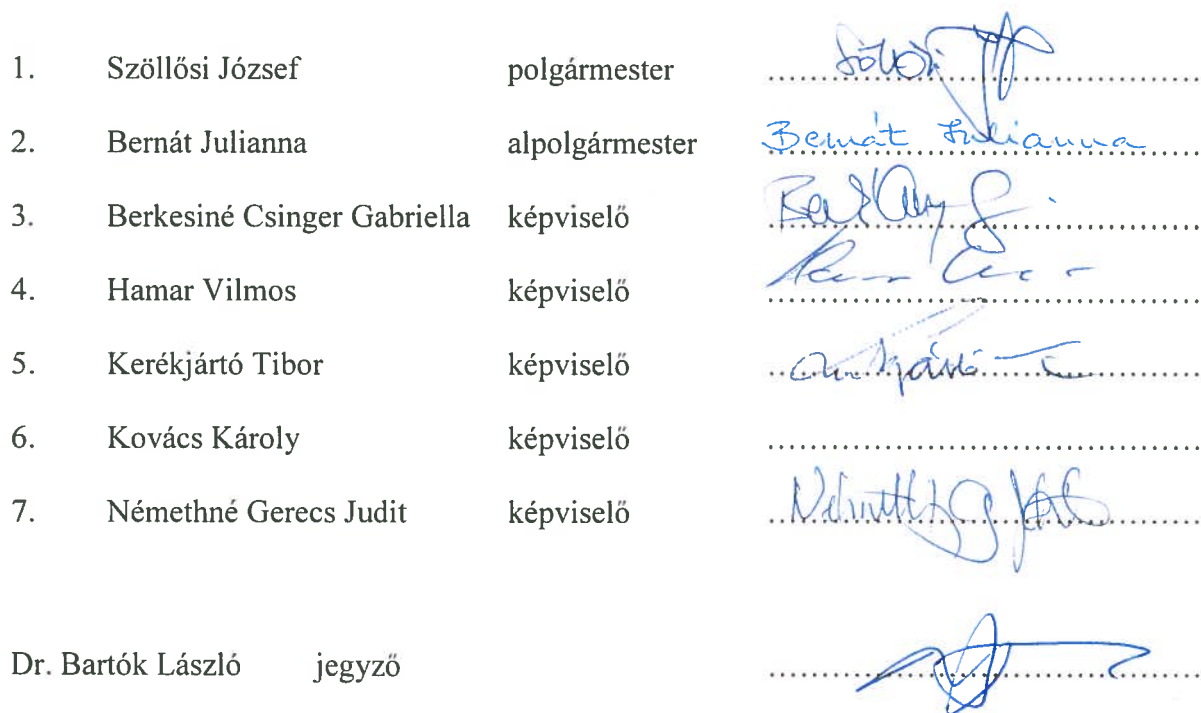 1. Szöllősi József polgármester
2. Bernát Julianna alpolgármester Bernát Julianna
3. Berkesiné Csinger Gabriella képviselő
4. Hamar Vilmos képviselő
5. Kerékjártó Tibor képviselő
6. Kovács Károly képviselő
7. Némethné Gerecs Judit képviselő
Dr. Bartók László jegyző